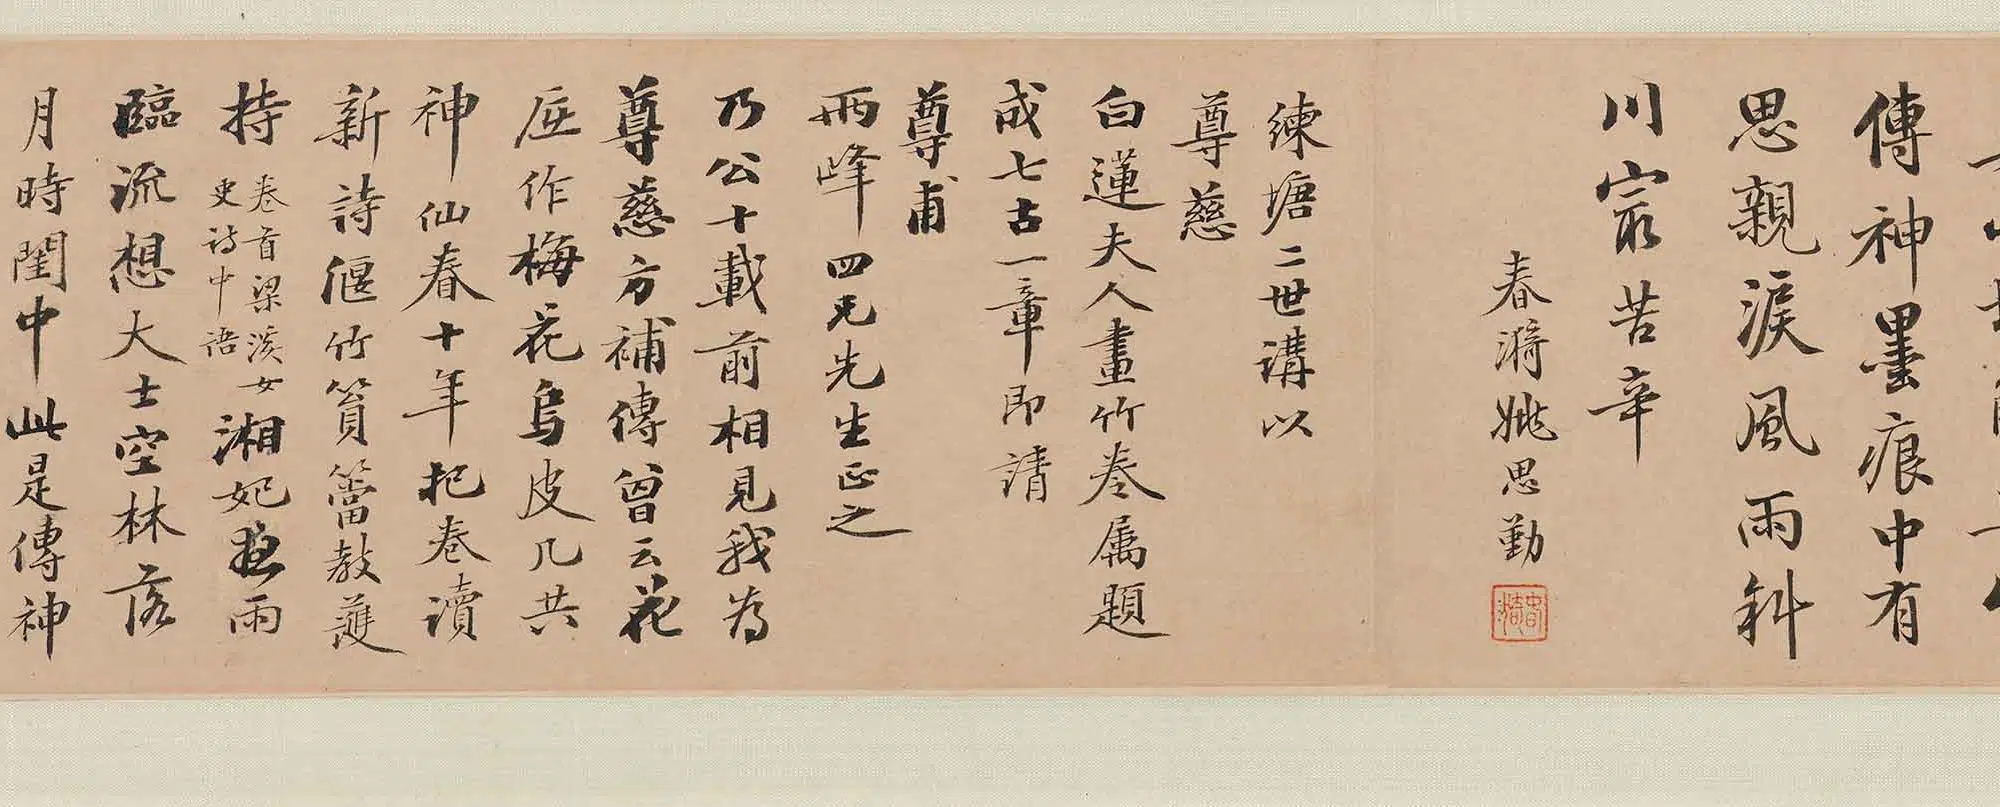 傳神墨痕中有
思親淚風雨斜
川最苦辛
春漪姚思勤
春漪
練塘二世講以
尊慈
白蓮夫人畫竹卷属題
成七古一章即請
尊甫
兩峰四兄先生正之
乃公十載前相見我為
尊慈方補傳曾云花
庭作梅花烏皮几共
神仙春十年把卷讀
新詩偃竹篔簹教護
持
卷首梁溪女
史詩中語
湘妃雨
臨流想大士空林落
月時閨中此是傳神